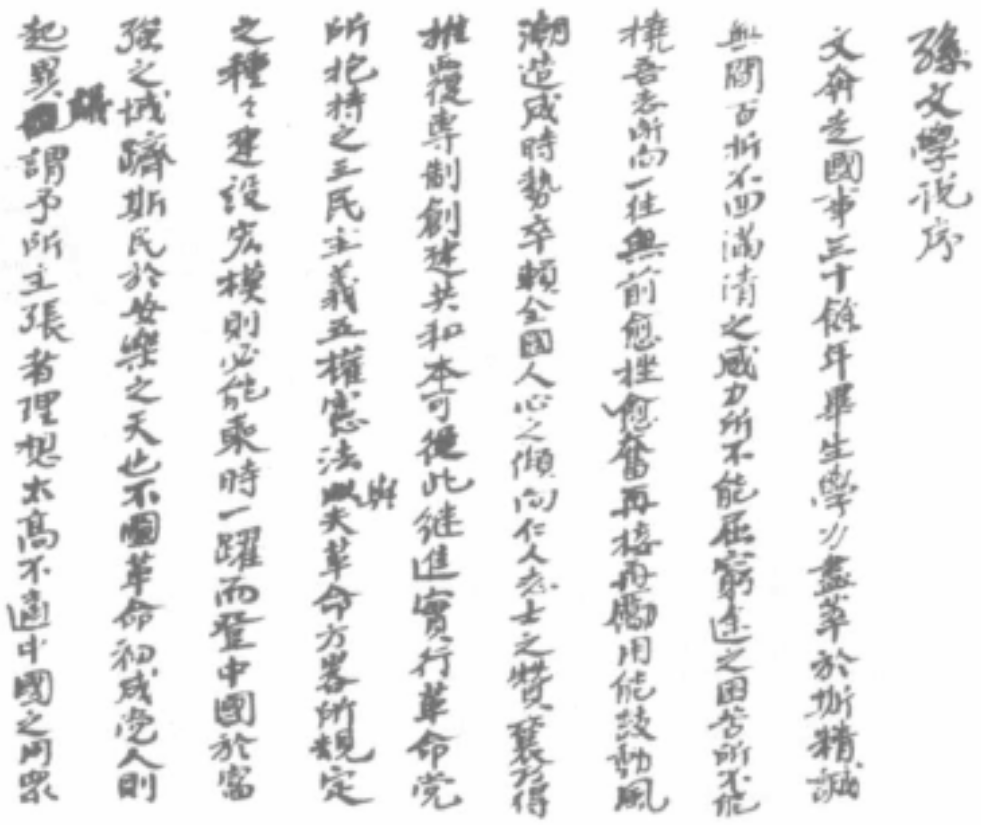 孫文學說序
文奔走國事三十餘年畢生學力盡萃於斯精誠
無間百折不回滿清之威力所不能屈窮途之困苦所不能
撓吾志所向一往無前愈挫愈奮再接再勵用能鼓動風
潮造成時勢卒賴全國人心之傾向仁人志士之贊襄乃得
推覆專制創建共和本可從此継進實行革命党
所抱持之三民主義五權憲法與夫革命方畧所規定
之種々建設宏模則必能乘時一躍而登中國於富
強之域躋斯民於安樂之天也不圖革命初成党人則
起異議謂予所主張者理想太高不適中國之用眾